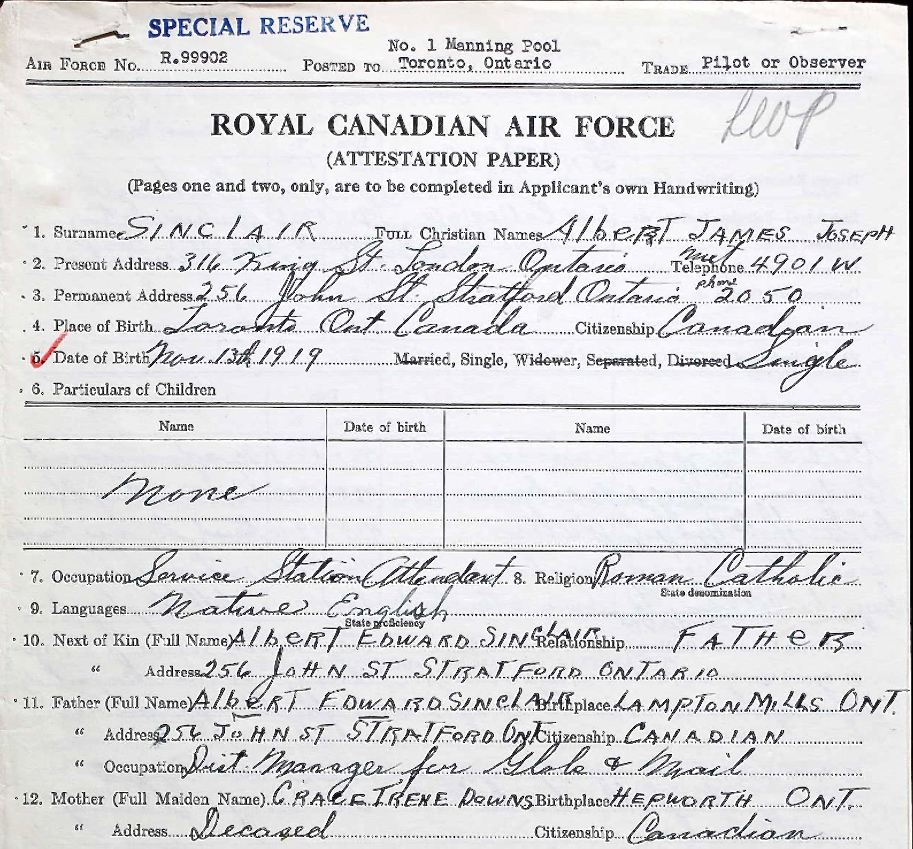 SPECIAL RESERVE
AIR FORCE No. R.99902 POSTED TO No. 1 Manning Pool Toronto, Ontario TRADE Pilot or Observer
ROYAL CANADIAN AIR FORCE
(ATTESTATION PAPER)
(Pages one and two, only, are to be completed in Applicant's own Handwriting)
1. Surname SINClAIR FULL Christian Names AlbeRT JAMES JOSEPH
2. Present Address 316 King St. London Ontario Telephone Met 4901 W
3. Permanent Address 256 John St. Stratford Ontario phone 2050
4. Place of Birth Toronto Ont Canada Citizenship Canadian
5. Date of Birth Nov. 13th 1919 Married, Single, Widower, Separated, Divorced Single
6. Particulars of Children
Name Date of birth Name Date of birth
None
7. Occupation Service Station Attendant 8. Religion Roman Catholic
State denomination
9. Languages Native English
State proficiency
10. Next of Kin (Full Name) AlbERT EDWARD SINClAIR Relationship FATHER
" Address 256 JOHN ST STRATFORD ONTARIO
11. Father (Full Name) AlbERT EDWARD SINClAIR Birthplace LAMPTON MILLS ONT.
" Address 256 JOHN ST STRATFORD ONT Citizenship CANADIAN
" Occupation Dist Manager for Globe & Mail
12. Mother (Full Maiden Name) GRACE IRENE DOWNS Birthplace HEPWORTH ONT.
" Address Decased Citizenship Canadian